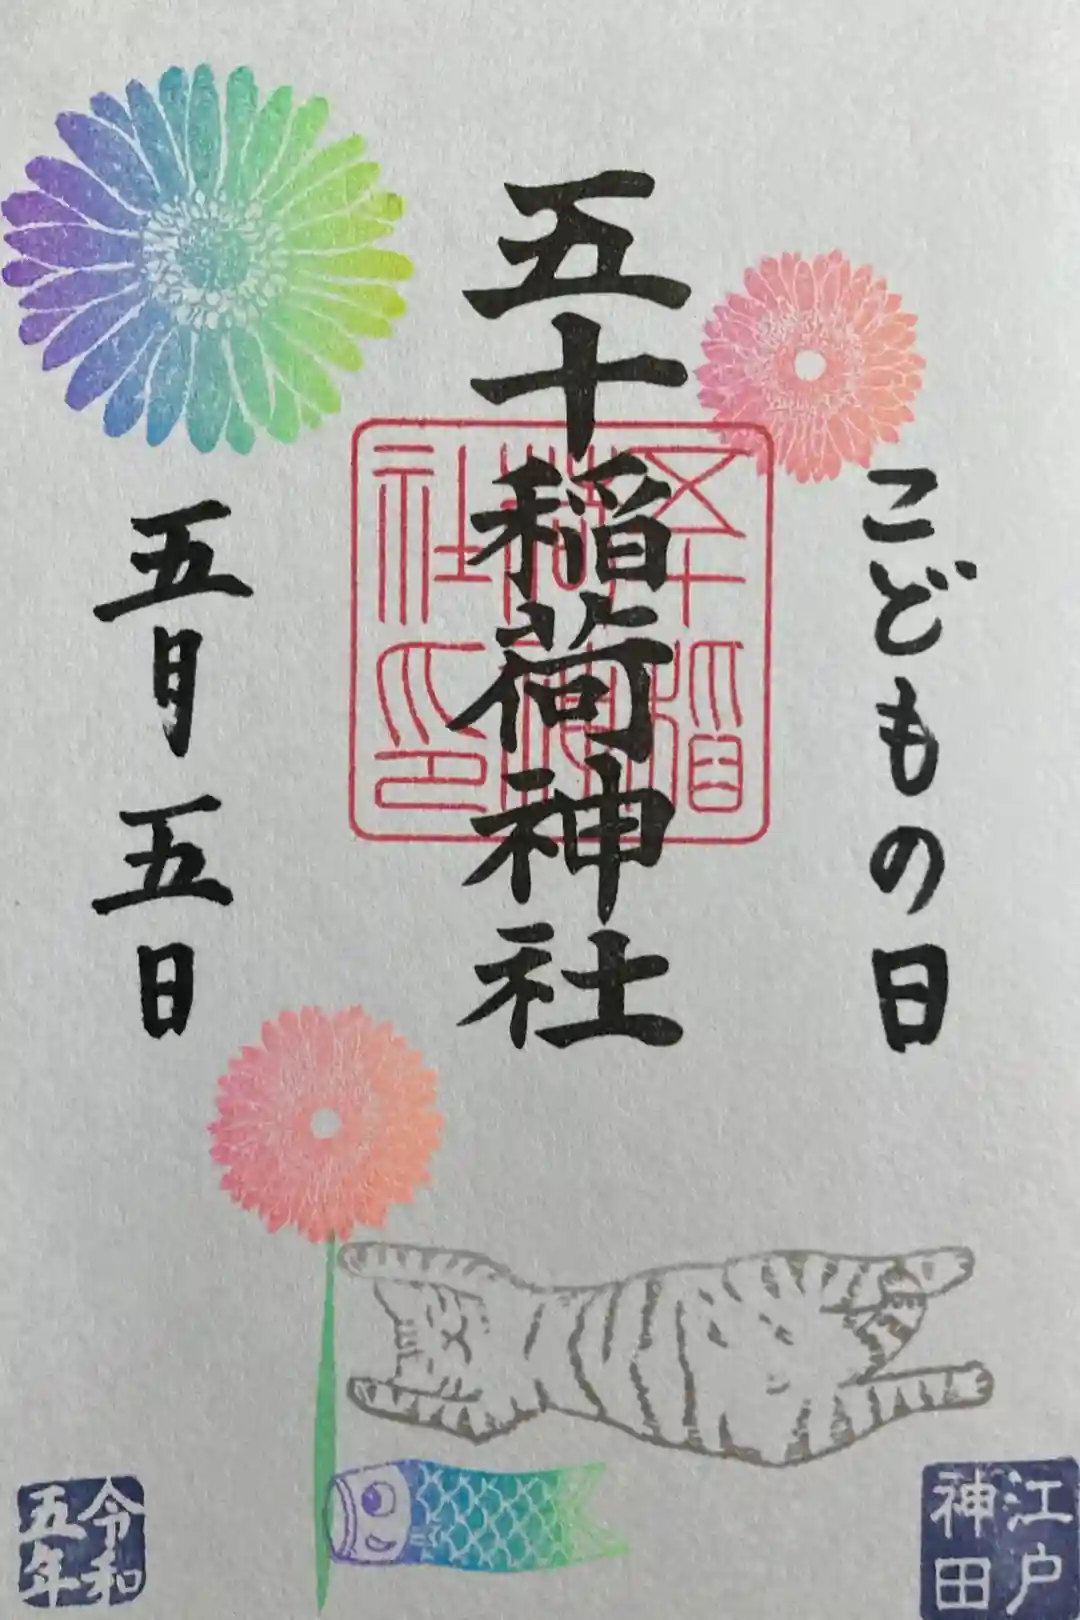 こどもの日
五十稲荷神社
五十稲荷神社印
五月五日
江戸
神田
令和
五年